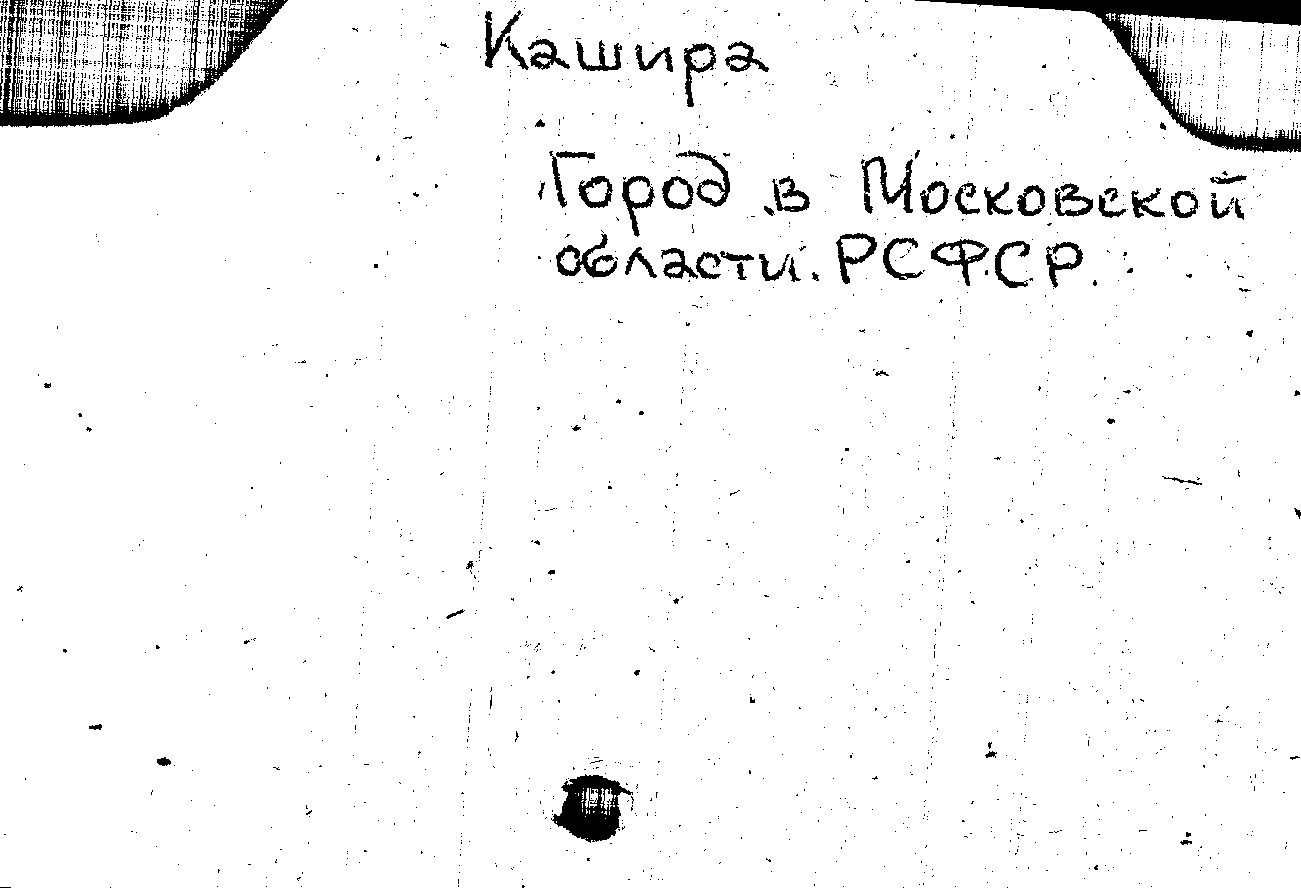 Кашира
Город в Московской
области. РСФСР.